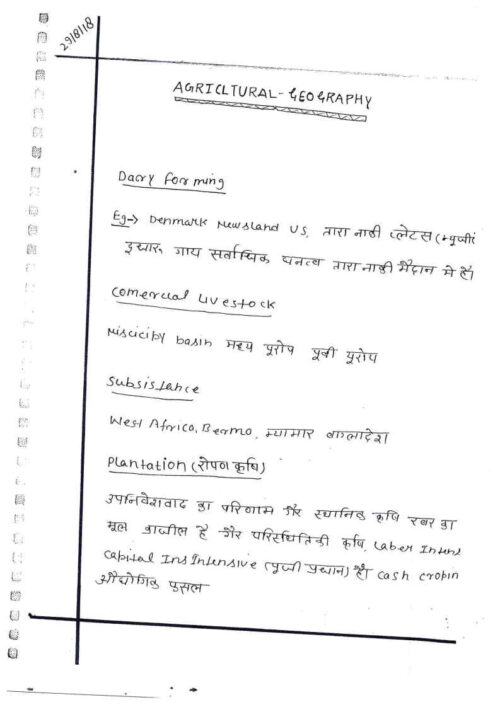 29/8/18
AGRICLTURAL - GEOGRAPHY
Dairy forming
Eg→ Denmark Newsland US, तारा नाकी प्लेटस
दुधारू गाय सर्वाधिक घनत्व तारा नाकी मैदान मे है।
Comercial Livestock
Miscicipy basin मध्य यूरोप पूर्वी यूरोप
Subsistance
West Africa, Bermo, म्यामार बाग्लादेश
Plantation (रोपण कृषि)
उपनिवेशवाद का परिणाम गैर स्थानिक कृषि रबर का
मूल ब्राजील है गैर परिस्थितिकी कृषि, Laber Intens
Capital Ins Intensive (पूजी प्रधान) है। Cash cropin
औद्योगिक फसल